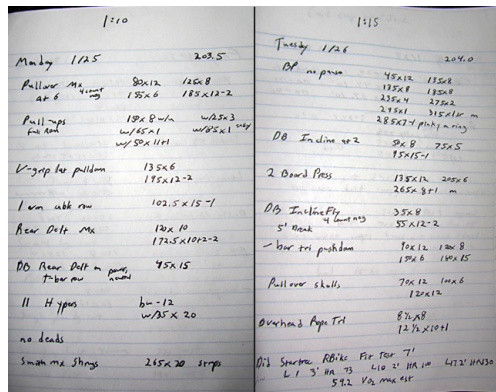 1:10
Monday 1/25 203.5
Pullover Mx 4 count neg 80x12 125x8
at 6 155x6 185x12-2
Pull-ups 150x8 w/n w/25x3
full Rom w/65x1 w/85x1
w/50x11+1
V-grip lat pulldown 135x6
195x12-2
1 arm cable row 102.5x15-1
Rear Delt Mx 120x10
172.5x10+2-2
DB Rear Delt on power, neutral 45x15
t-bar row
11 Hypers bw-12
w/35x20
no deads
Smith mx Shrugs 265x20 straps
1:15
Tuesday 1/26 204.0
BP no pause 45x12 135x8
135x8 185x8
235x4 275x2
295x1 315x1 m
285x7-1 pinky on ring
DB Incline at 2 50x8 75x5
95x15-1
2 Board Press 135x12 205x6
265x8+1 m
DB Incline Fly 4 count neg 35x8
5' Break 55x12-2
- bar tri pushdown 90x12 120x8
150x6 180x15
Pullover skulls 70x12 100x6
120x12
Overhead Rope Tri 8½x8
12½x10+1
Did Startrac RBike Fit Test 7'
L1 3' HR 73 L10 2' HR 100 L17 2' HR 130
59.2 VO2 max est